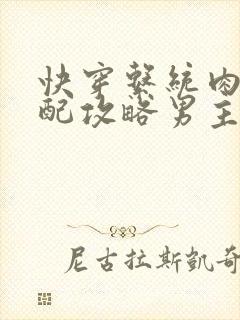 快穿系統肉
配攻略男主
尼古拉斯凱奇